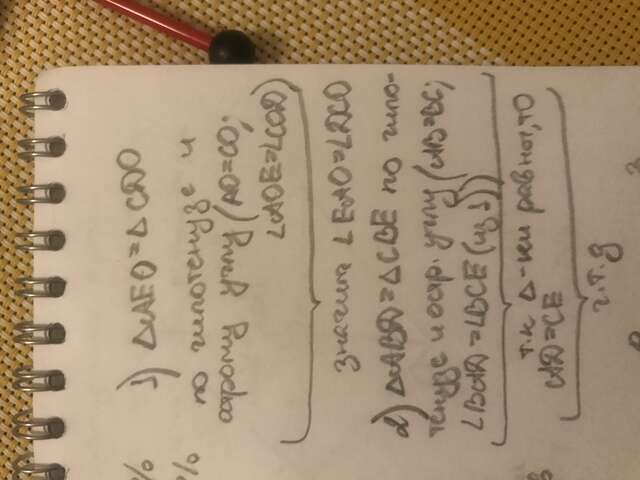 1) ΔAEO = ΔCDO
по гипотенузе и
острому углу (AO=CO;
∠AOE=∠COD)
значит ∠EAO=∠DCO
2) ΔABD=ΔCBE по гипо-
тенузе и остр. углу (AB=BC;
∠BAD=∠BCE (из 1))
т.к Δ-ки равны, то
AD=CE
ч.т.д
%
%